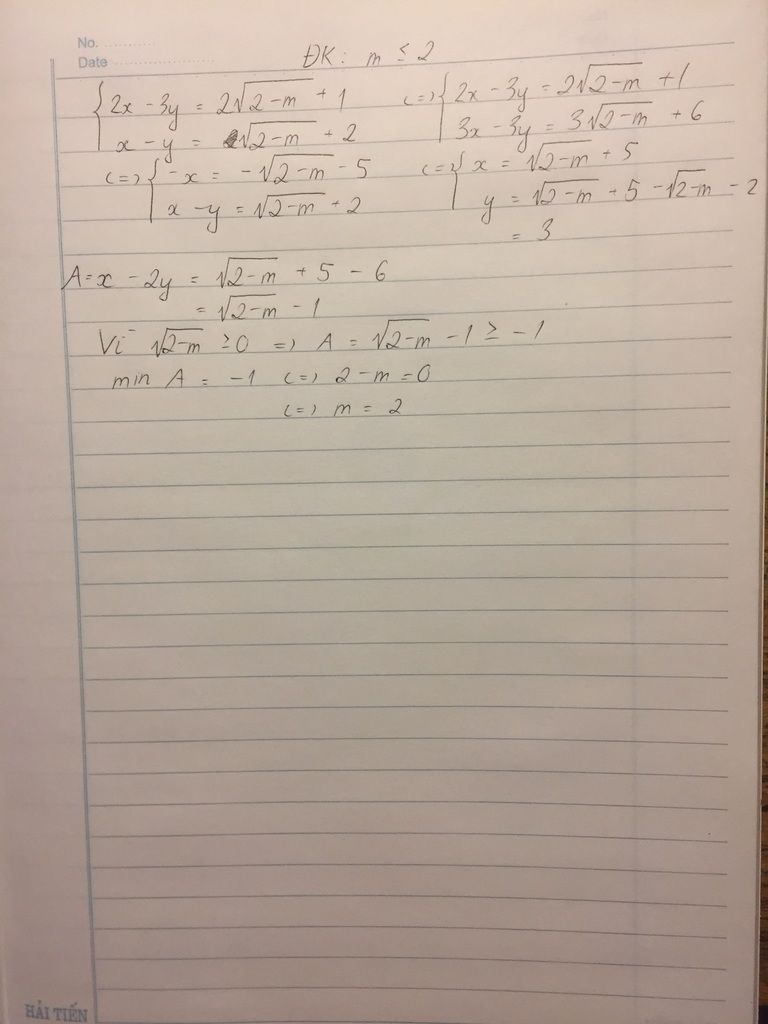 No. ............
Date ........................
ĐK: m ≤ 2
{ 2x - 3y = 2√(2-m) + 1 <=> { 2x - 3y = 2√(2-m) + 1
x - y = √(2-m) + 2 3x - 3y = 3√(2-m) + 6
<=> { -x = -√(2-m) - 5 <=> { x = √(2-m) + 5
x - y = √(2-m) + 2 y = √(2-m) + 5 - √(2-m) - 2
= 3
A = x - 2y = √(2-m) + 5 - 6
= √(2-m) - 1
Vì √(2-m) ≥ 0 => A = √(2-m) - 1 ≥ -1
min A = -1 <=> 2-m = 0
<=> m = 2
HẢI TIẾN